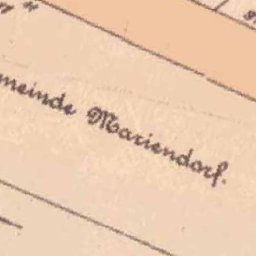 meinde Mariendorf.